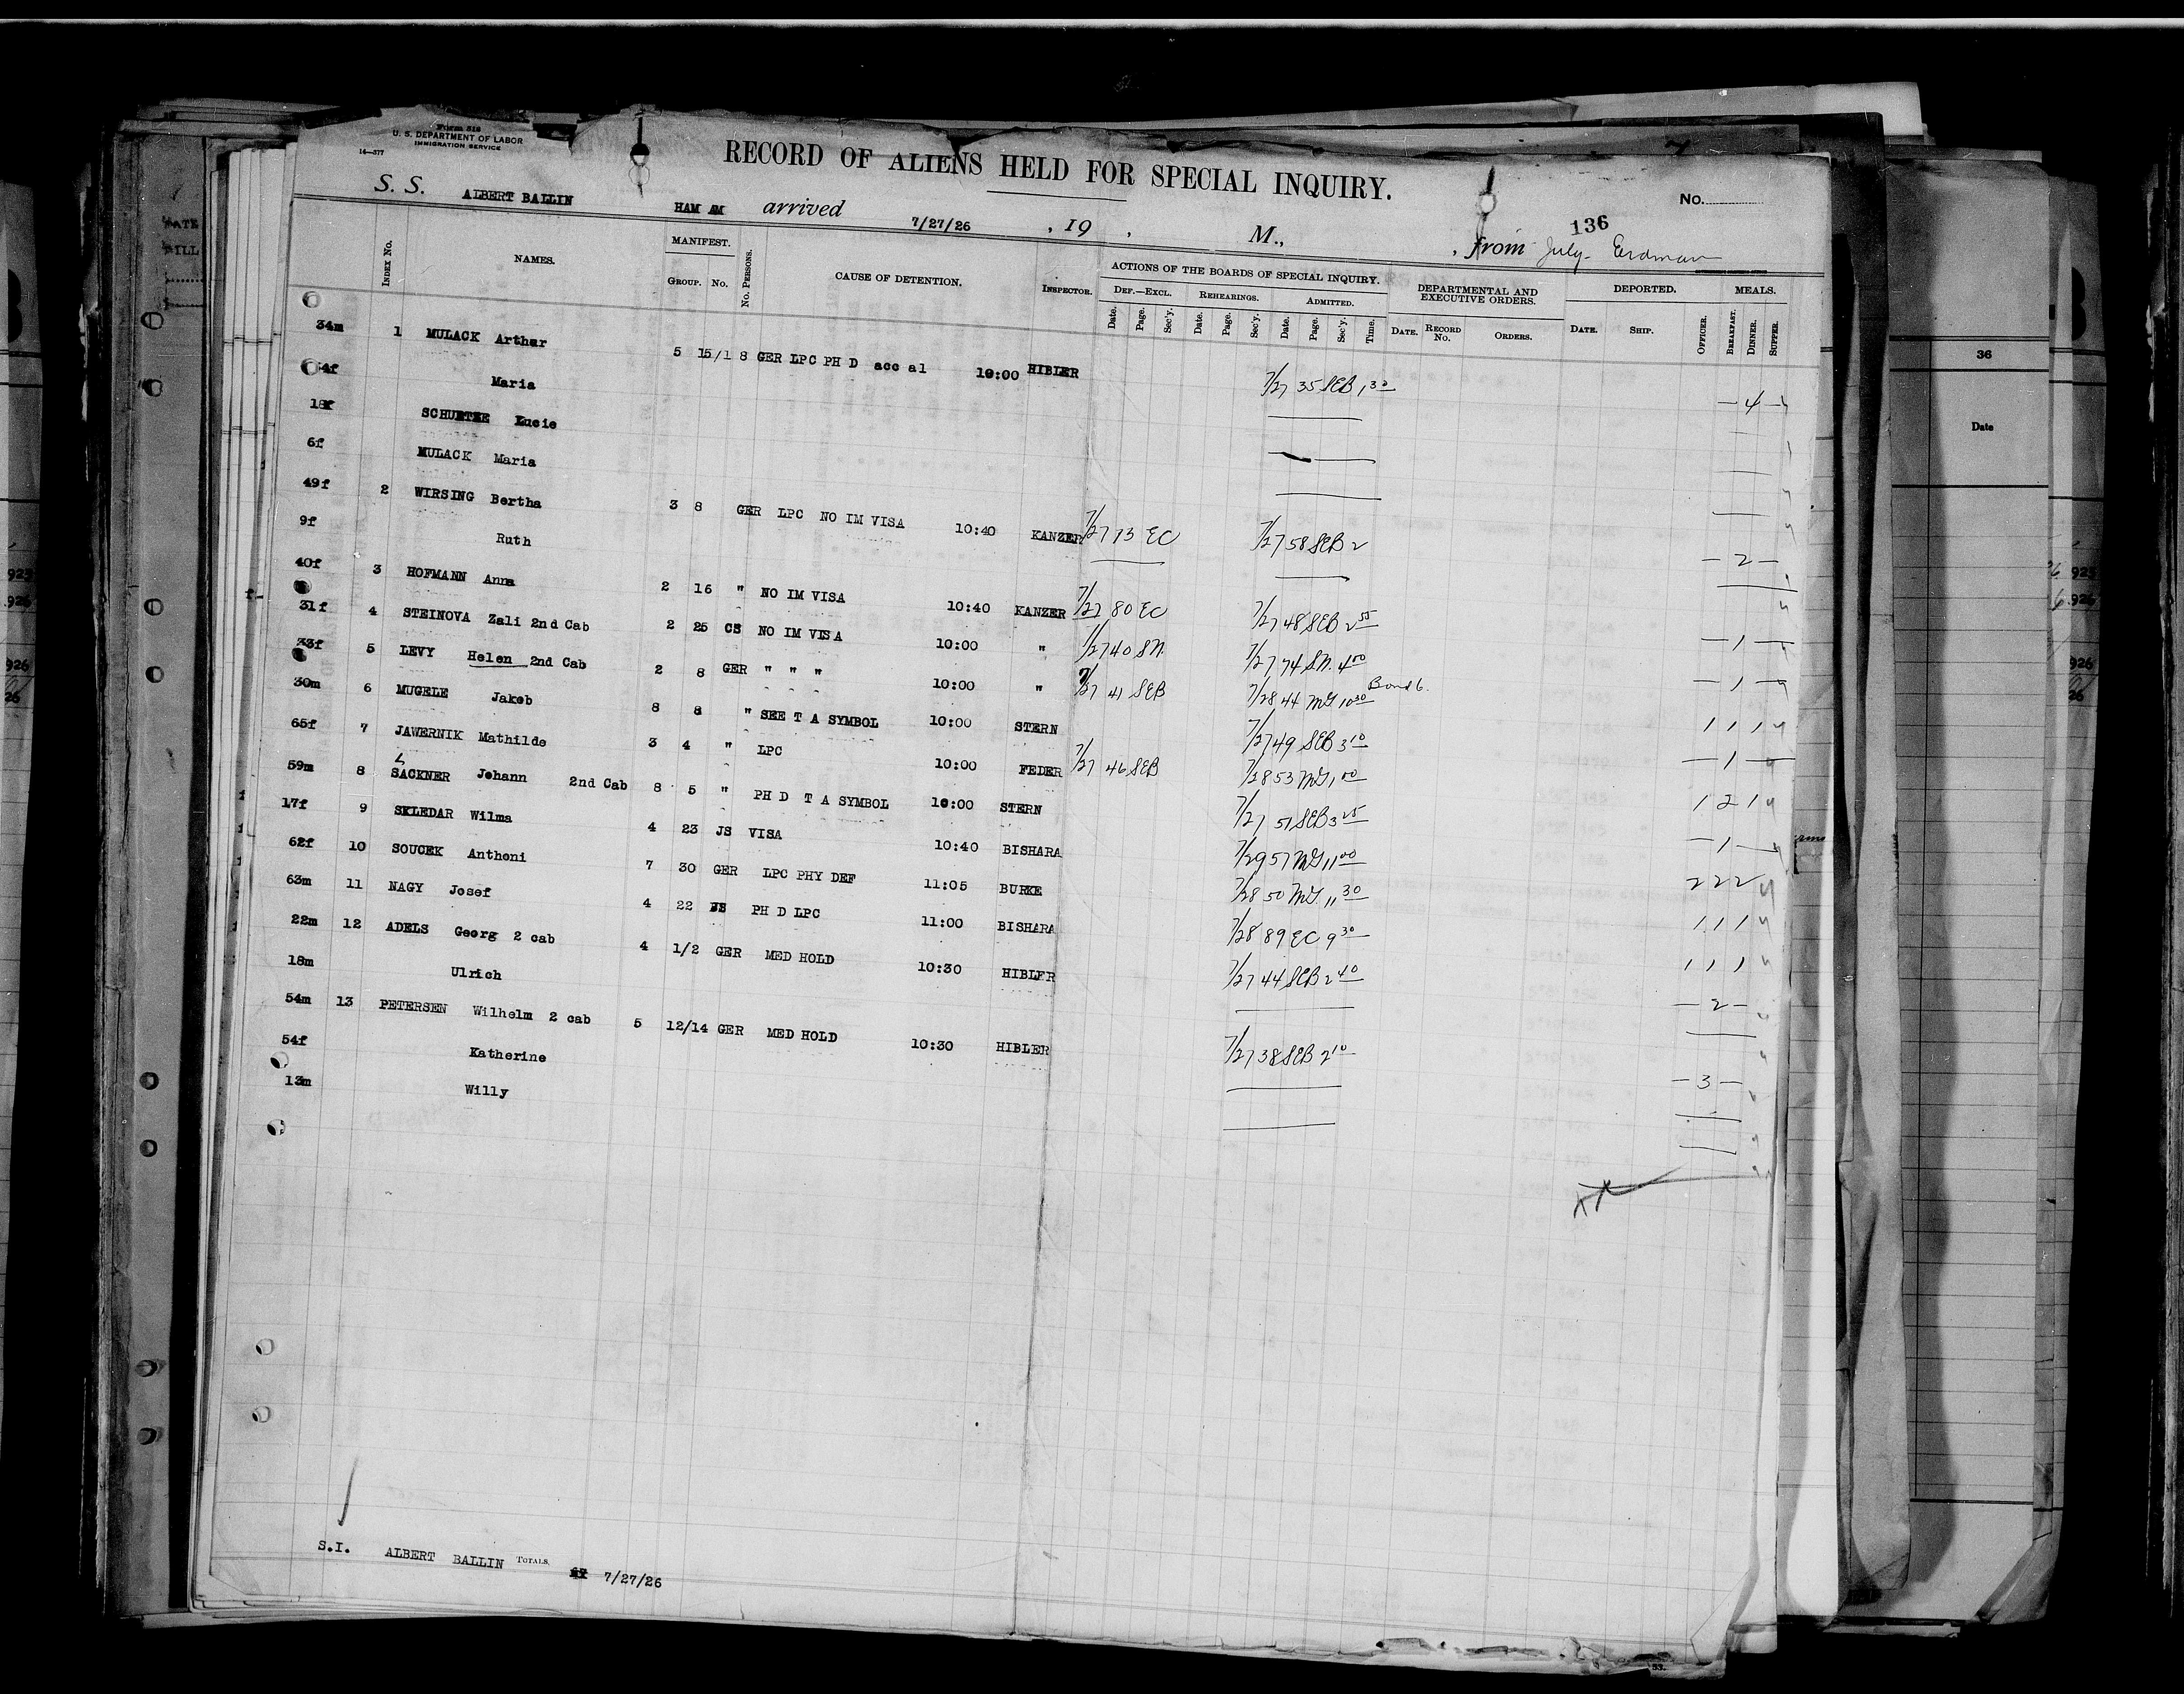 Form 518
U. S. DEPARTMENT OF LABOR
IMMIGRATION SERVICE
14—377
RECORD OF ALIENS HELD FOR SPECIAL INQUIRY.
No.
136
S. S. ALBERT BALLIN HAM AM arrived 7/27/26 , 19 , M., , from July- Erdman
INDEX No. NAMES. MANIFEST. GROUP. No. No. PERSONS. CAUSE OF DETENTION. INSPECTOR. ACTIONS OF THE BOARDS OF SPECIAL INQUIRY. DEF.—EXCL. Date. Page. Sec'y. REHEARINGS. Date. Page. Sec'y. ADMITTED. Date. Page. Sec'y. Time. DEPARTMENTAL AND EXECUTIVE ORDERS. DATE. RECORD No. ORDERS. DEPORTED. DATE. SHIP. OFFICER. MEALS. BREAKFAST. DINNER. SUPPER.
34m 1 MULACK Arthur 5 15/1 8 GER LPC PH D acc al 10:00 HIBLER 7/27 35 SEB 1 30 — 4 —
4f Maria
18f SCHUSTER Lucie
6f MULACK Maria
49f 2 WIRSING Bertha 3 8 GER LPC NO IM VISA 10:40 KANZER 7/27 73 EC 7/27 58 SEB 2 — 2 —
9f Ruth
40f 3 HOFMANN Anna 2 16 " NO IM VISA 10:40 KANZER 7/27 80 EC 7/27 48 SEB 2 55 — 1 —
31f 4 STEINOVA Zali 2nd Cab 2 25 CS NO IM VISA 10:00 " 7/27 40 SN. 7/27 74 SN. 4 00 — 1 —
33f 5 LEVY Helen 2nd Cab 2 8 GER " " " 10:00 " 7/27 41 SEB 7/28 44 MG 10 30 Bond 6. 1 1 1
30m 6 MUGELE Jakob 8 8 " SEE T A SYMBOL 10:00 STERN 7/27 49 SEB 3 10 — 1 —
65f 7 JAWERNIK Mathilde 3 4 " LPC 10:00 FEDER 7/27 46 SEB 7/28 53 MG 1 00 1 2 1
59m 8 SACKNER Johann 2nd Cab 8 5 " PH D T A SYMBOL 10:00 STERN 7/27 51 SEB 3 25 — 1 —
17f 9 SKLEDAR Wilma 4 23 JS VISA 10:40 BISHARA 7/29 57 MG 11 00 2 2 2
62f 10 SOUCEK Anthoni 7 30 GER LPC PHY DEF 11:05 BURKE 7/28 50 MG. 11 30 1 1 1
63m 11 NAGY Josef 4 22 JS PH D LPC 11:00 BISHARA 7/28 89 EC 9 30 1 1 1
22m 12 ADELS Georg 2 cab 4 1/2 GER MED HOLD 10:30 HIBLER 7/27 44 SEB 2 40 — 2 —
18m Ulrich
54m 13 PETERSEN Wilhelm 2 cab 5 12/14 GER MED HOLD 10:30 HIBLER 7/27 38 SEB 2 10 — 3 —
54f Katherine
13m Willy
S.I. ALBERT BALLIN TOTALS, 7/27/26
36
Date